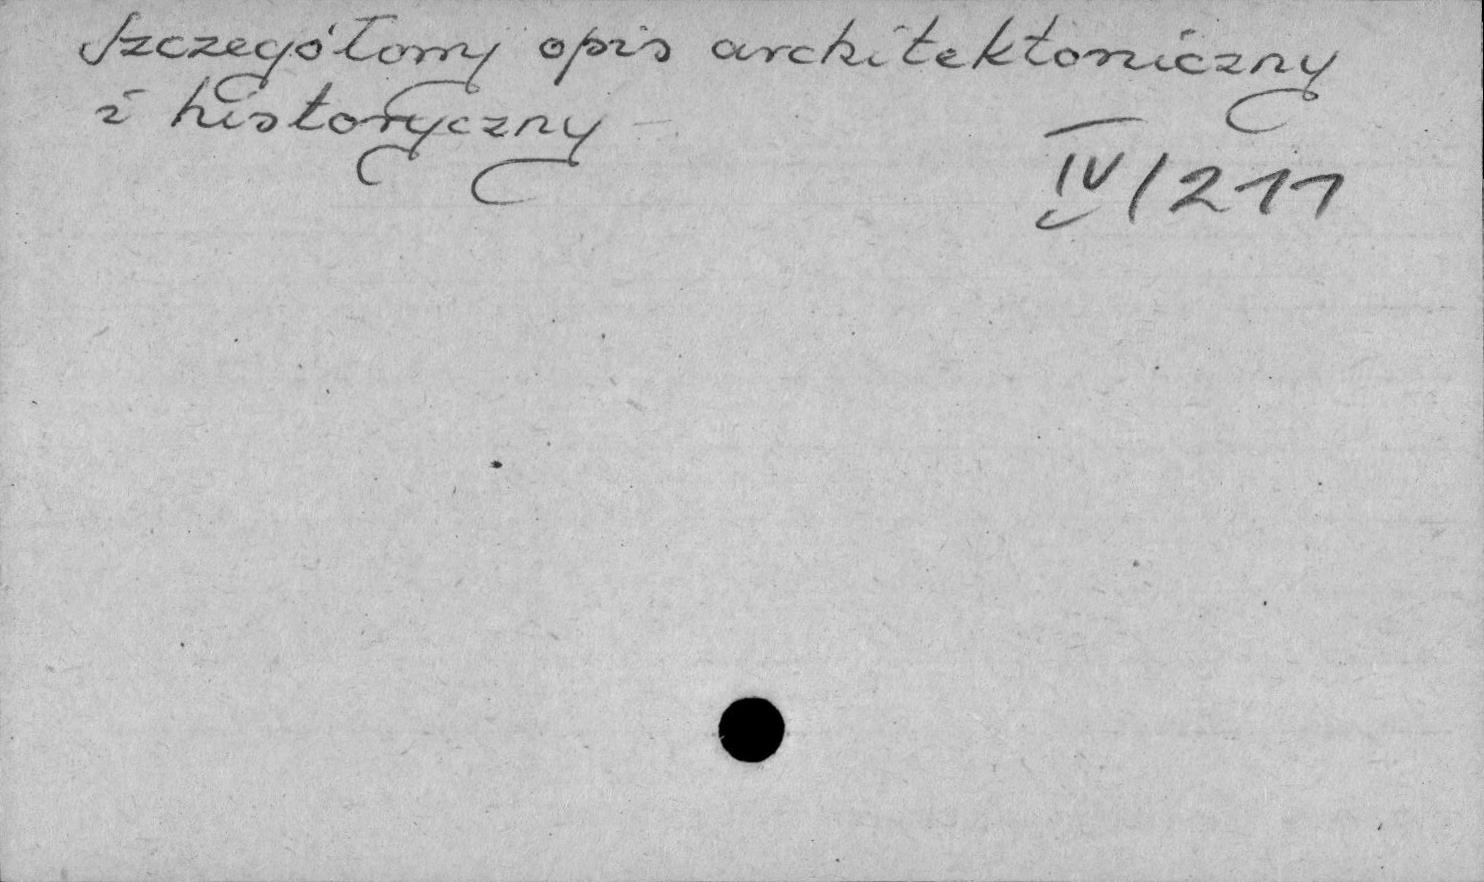 Szczegółowy opis architektoniczny
i historyczny
IV/211